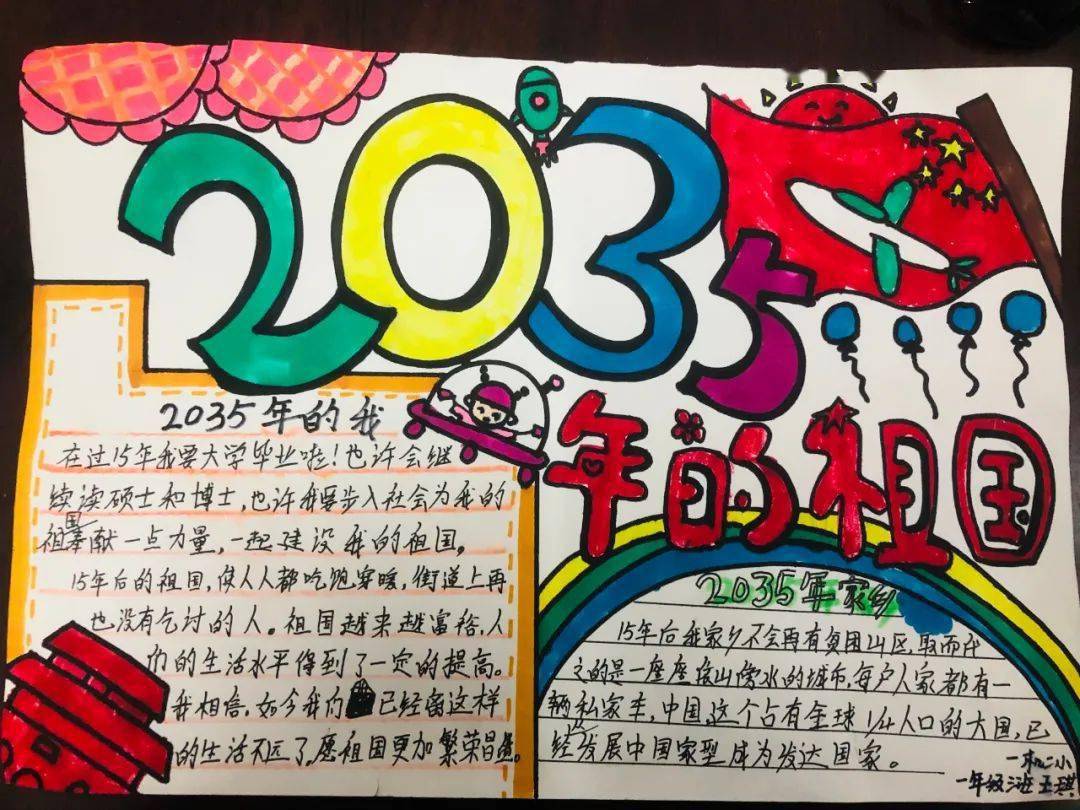 2035
年的祖国
2035年的我
在过15年我要大学毕业啦!也许会继
续读硕士和博士,也许我要步入社会为我的
祖国奉献一点力量,一起建设我的祖国。
15年后的祖国,使人人都吃饱穿暖,街道上再
也没有乞讨的人。祖国越来越富裕,人
们的生活水平得到了一定的提高。
我相信,如今我们已经离这样
的生活不远了。愿祖国更加繁荣昌盛。
2035年家乡
15年后我家乡不会再有贫困山区,取而代
之的是一座座依山傍水的城市,每户人家都有一
辆私家车,中国,这个占有全球1/4人口的大国,已
经从发展中国家型成为发达国家。
一机二小
一年级2班王琪